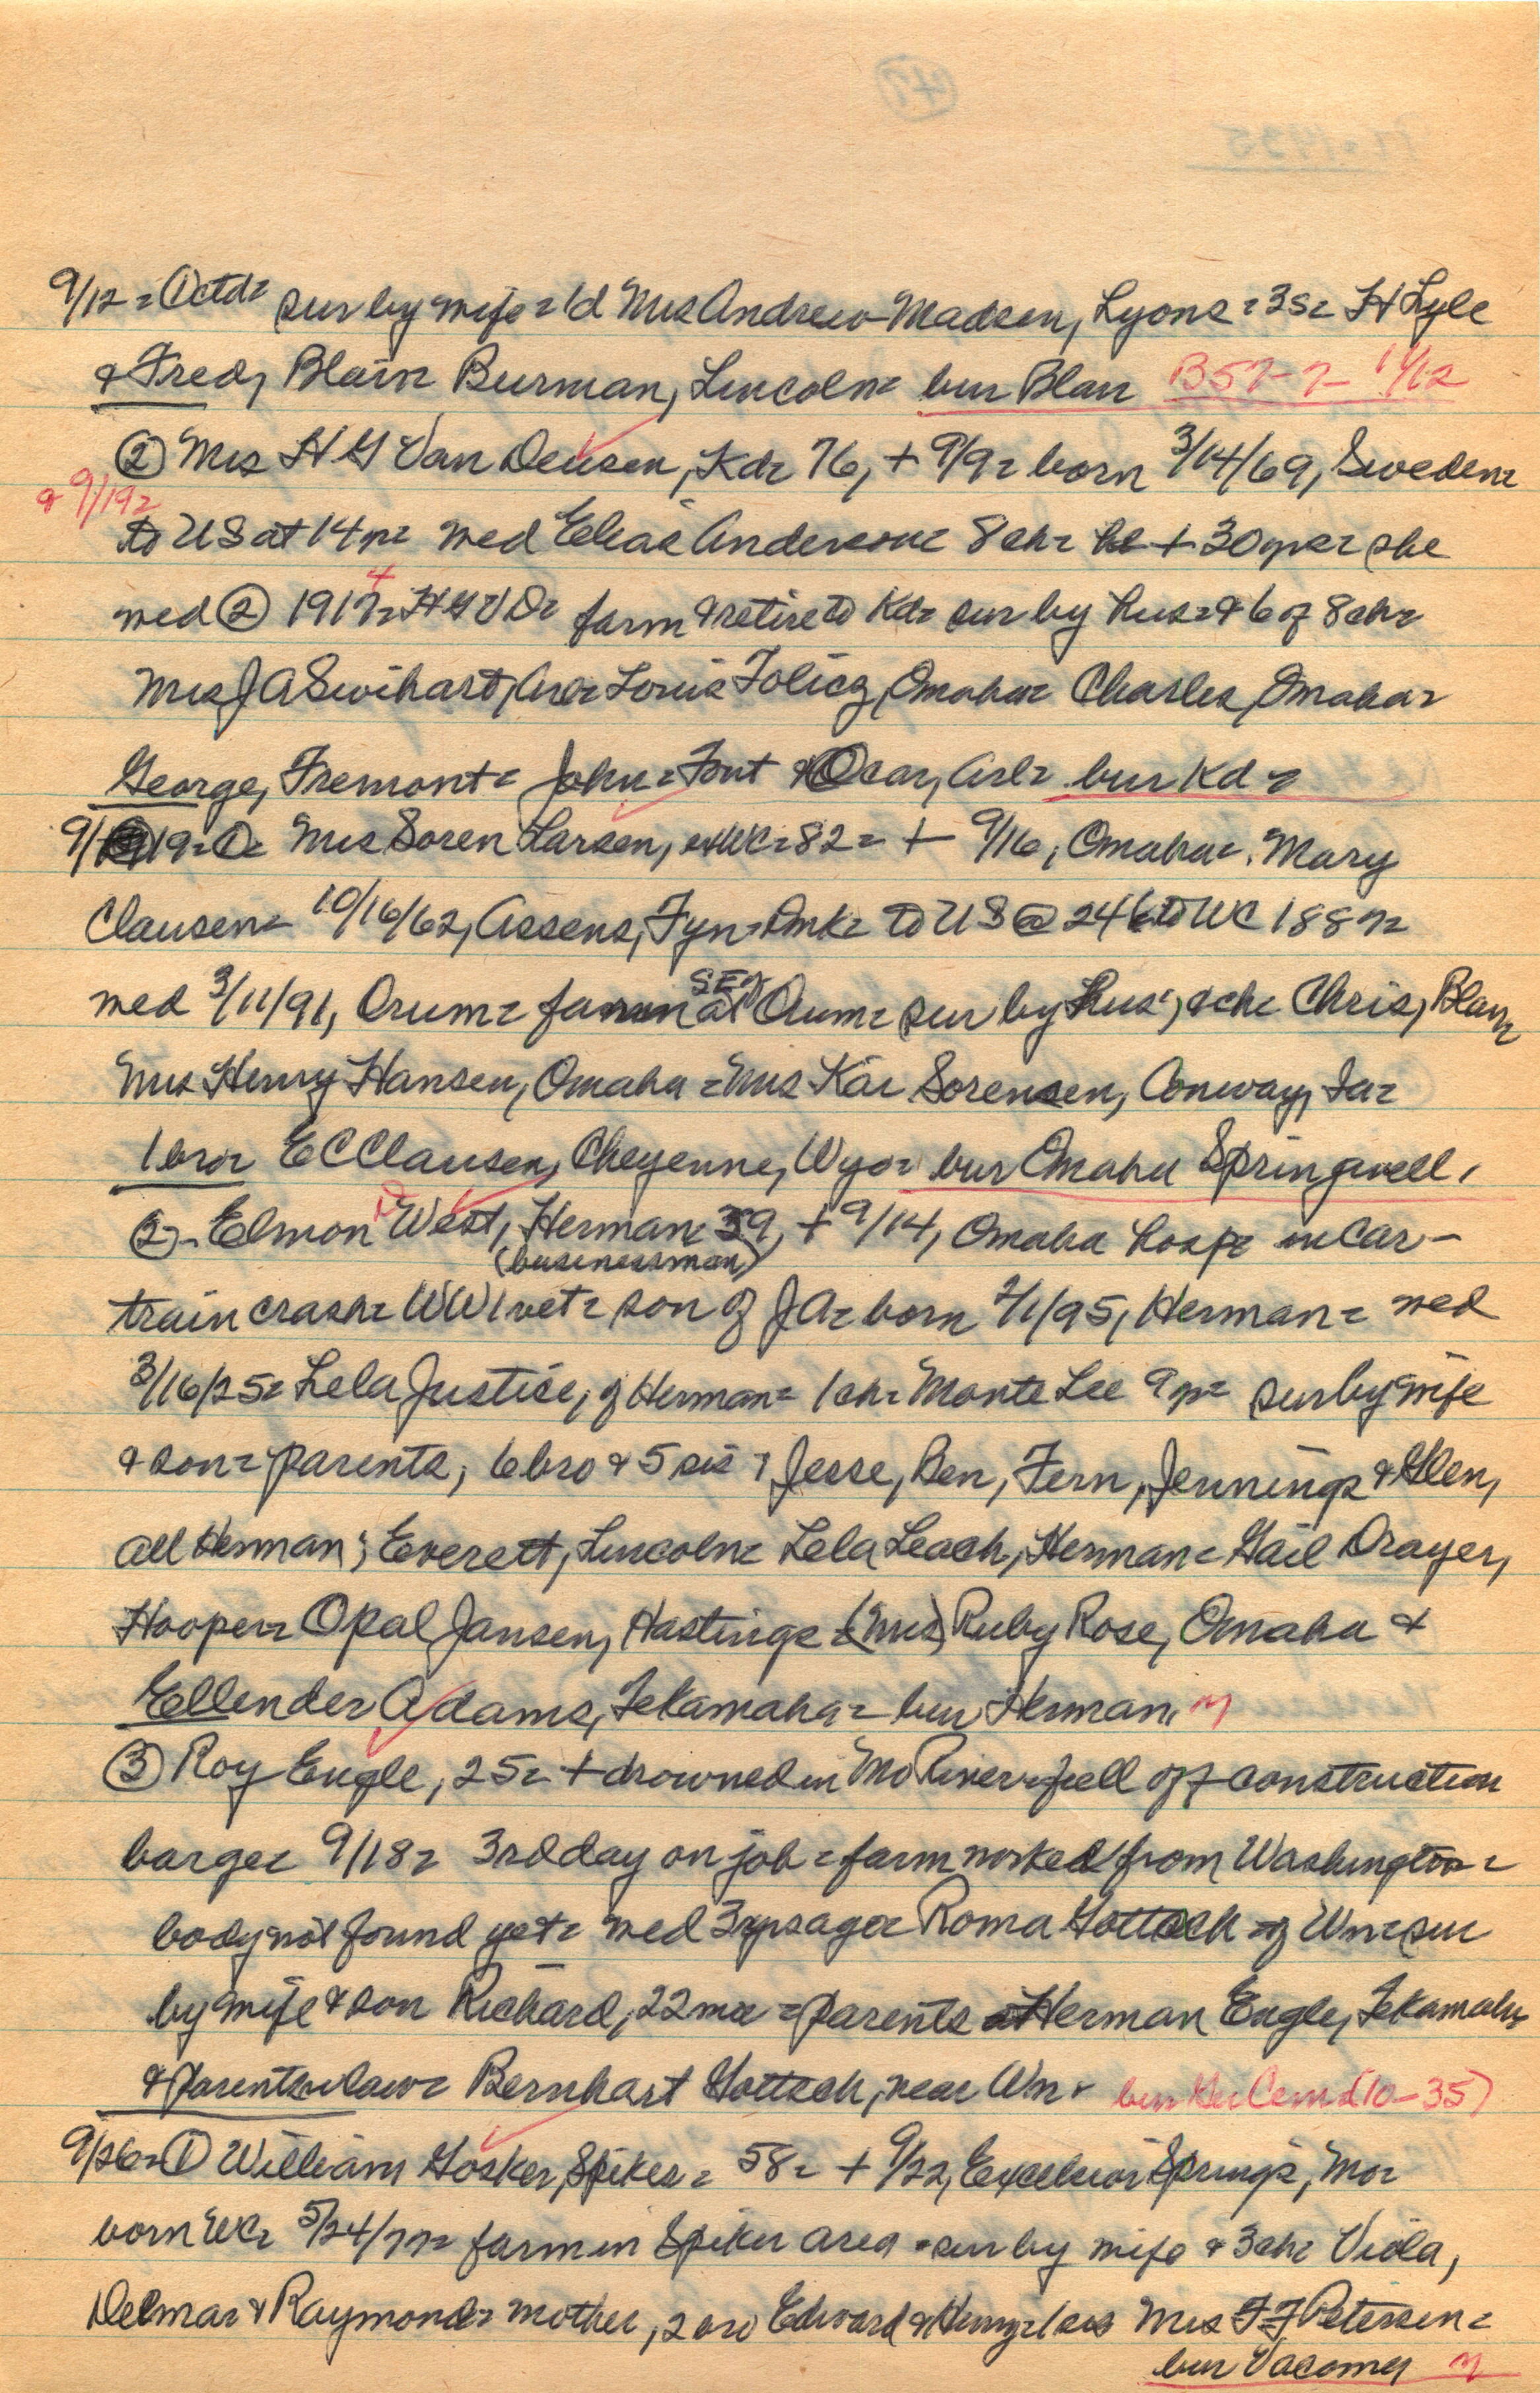 9/12 = ① ctd = sur by wife = 1d Mrs Andrew Madsen, Lyons = 3s = H Lyle
& Fred, Blair = Burman, Lincoln = bur Blair B57-7- 11/12
② Mrs H G Van Deusen, Kd = 76, + 9/9 = born 3/14/69, Sweden =
& 9/19 =
to US at 14 yr = wed Elias Anderson = 8 ch = he + 30 yrs = she
wed ② 1917 = H G V D = farm & retire to Kd = sur by hus = & 6 of 8 ch =
Mrs J A Swihart, Arl = Louis Folicz, Omaha = Charles, Omaha =
George, Fremont = John = Fmt & Oscar, Arl = bur Kd =
9/19 = ① = Mrs Soren Larsen, exWC = 82 = + 9/16, Omaha = Mary
Clausen = 10/16/62, Assens, Fyn = Dmk = to US @ 24 & to WC 1887 =
wed 3/11/91, Orum = farm SE of at Orum = sur by hus, ch = Chris, Blair =
Mrs Henry Hansen, Omaha = Mrs Kai Sorensen, Conway, Ia =
1 bro = E C Clausen, Cheyenne, Wyo = bur Omaha Springwell,
② - Elmon D West, Herman = 39, + 9/14, Omaha hosp = in car -
(businessman)
train crash = WW1 vet = son of J A = born 2/1/95, Herman = wed
3/16/25 = Lela Justice, of Herman = 1 ch = Monte Lee 9 yr = sur by wife
& son = parents, 6 bro & 5 sis : Jesse, Ben, Fern, Jennings & Glen,
all Herman; Everett, Lincoln = Lela Leach, Herman = Gail Drayer,
Hooper = Opal Jansen, Hastings = (Mrs) Ruby Rose, Omaha &
Ellender Adams, Tekamaha = bur Herman.
③ Roy Engle, 25 = + drowned in Mo River = fell off construction
barge = 9/18 = 3rd day on job = farm worked from Washington =
body not found yet = wed 3 yrs ago = Roma Gottsch = of Wn = sur
by wife & son Richard, 22 mo = parents Herman Engle, Tekamaha
& parents in law = Bernhart Gottsch, near Wn = bur Cem (10-35)
9/26 = ① William Gosker, Spiker = 58 = + 9/22, Excelsior Springs, Mo =
born WC = 5/24/77 = farm in Spiker area = sur by wife & 3 ch = Viola,
Delmar & Raymond = mother, 2 bro Edward & Henry = 1 sis Mrs F J Petersen =
bur Vacoma